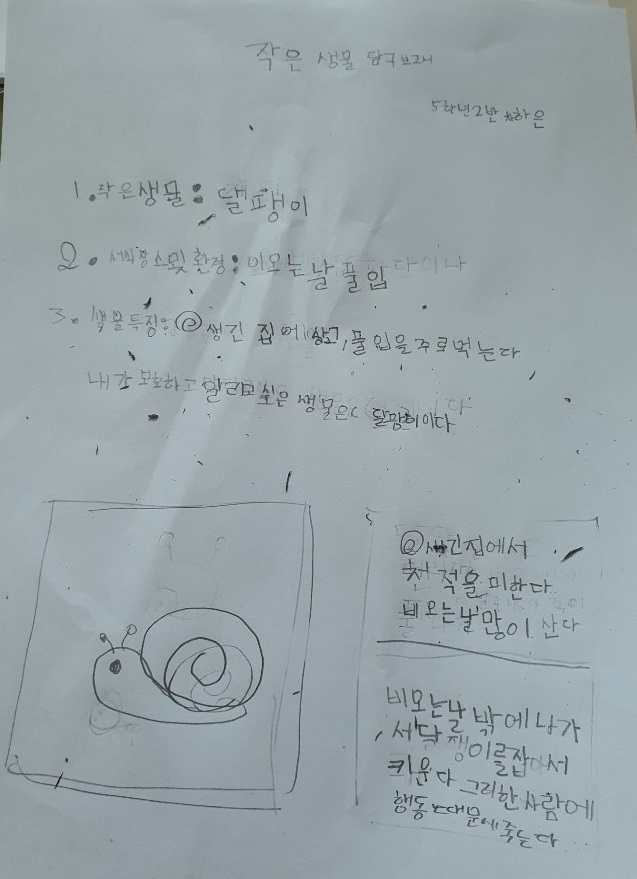 작은 생물 탐구보고서
5학년2반 차하은
1.작은생물: 달팽이
2. 서식장소및환경: 비오는날 풀입
3. 생물특징: @생긴 집에살고, 풀입을주로먹는다
내가 보호하고 알리고싶은 생물은 달팽이이다
@생긴집에서
천적을피한다
비오는날많이 산다
비오는날 밖에나가
서달팽이를잡아서
키운다 그리한사람에
행동때문에죽는다